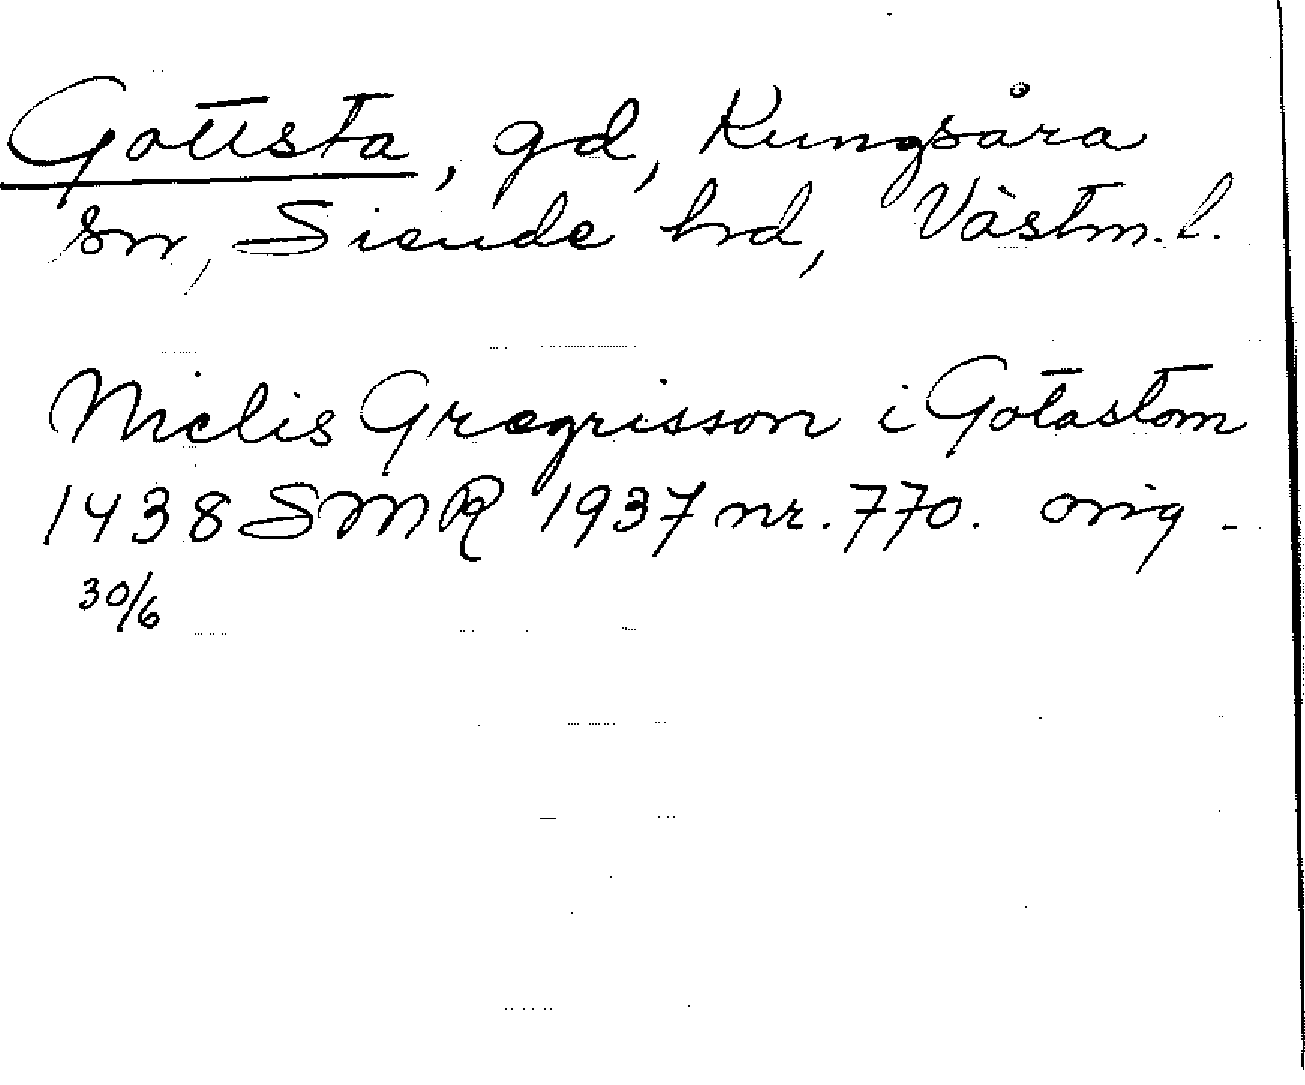 Gottsta, gd, Kungsåra
sn, Siende hd, Västm. l.
Niclis Gregrisson i Gotastom
1438 SMR 1937 nr. 770. orig -
30/6